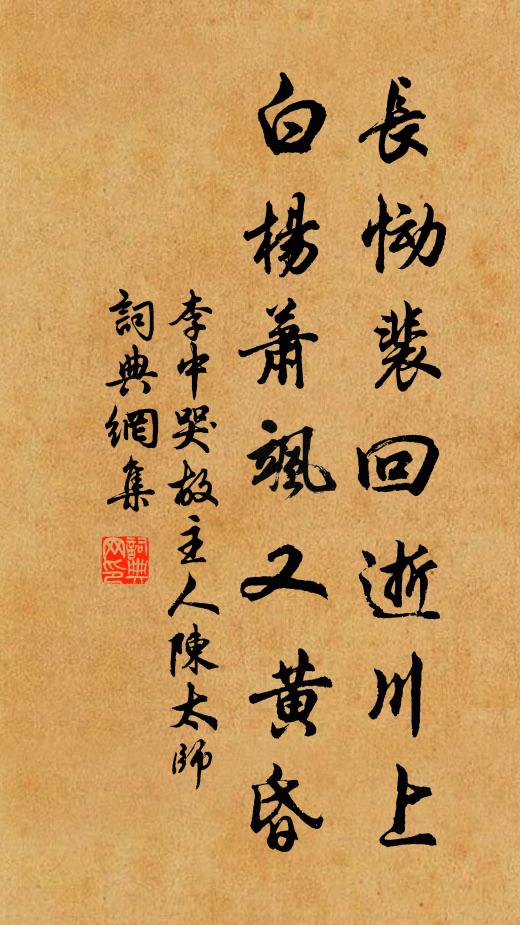 長慟裴回逝川上
白楊蕭颯又黄昏
李中哭故主人陳太師
詞典網集
詞典网印